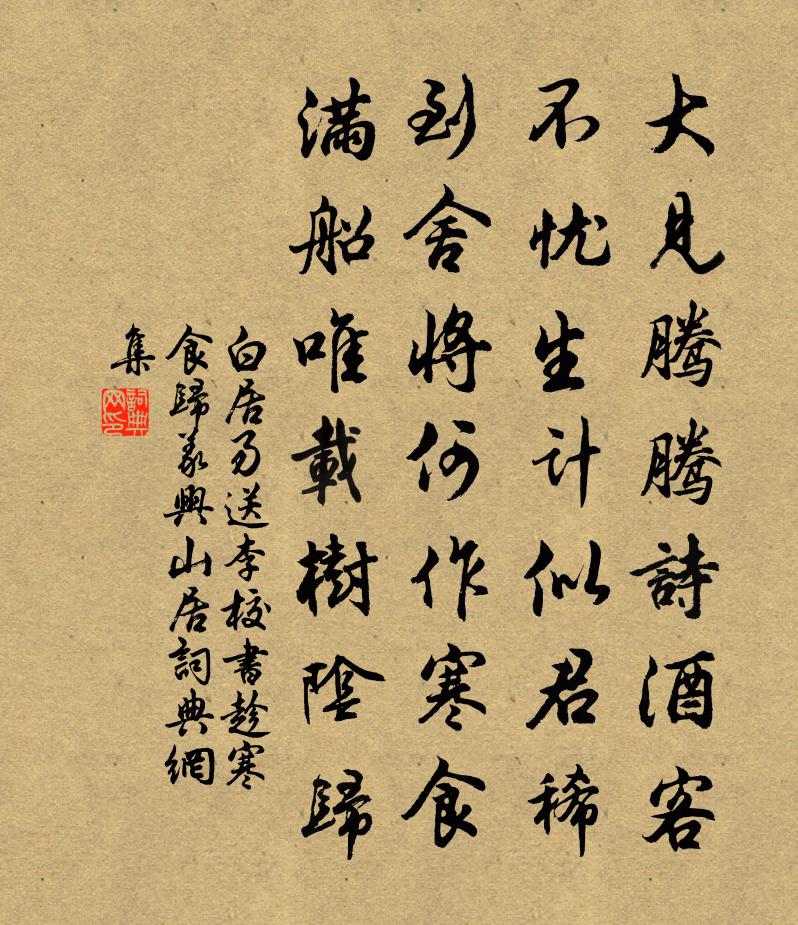 大見騰騰詩酒客
不忧生计似君稀
到舍将何作寒食
满船唯載樹陰歸
白居易送李校書趁寒
食歸義興山居詞典網
集
詞典
网印